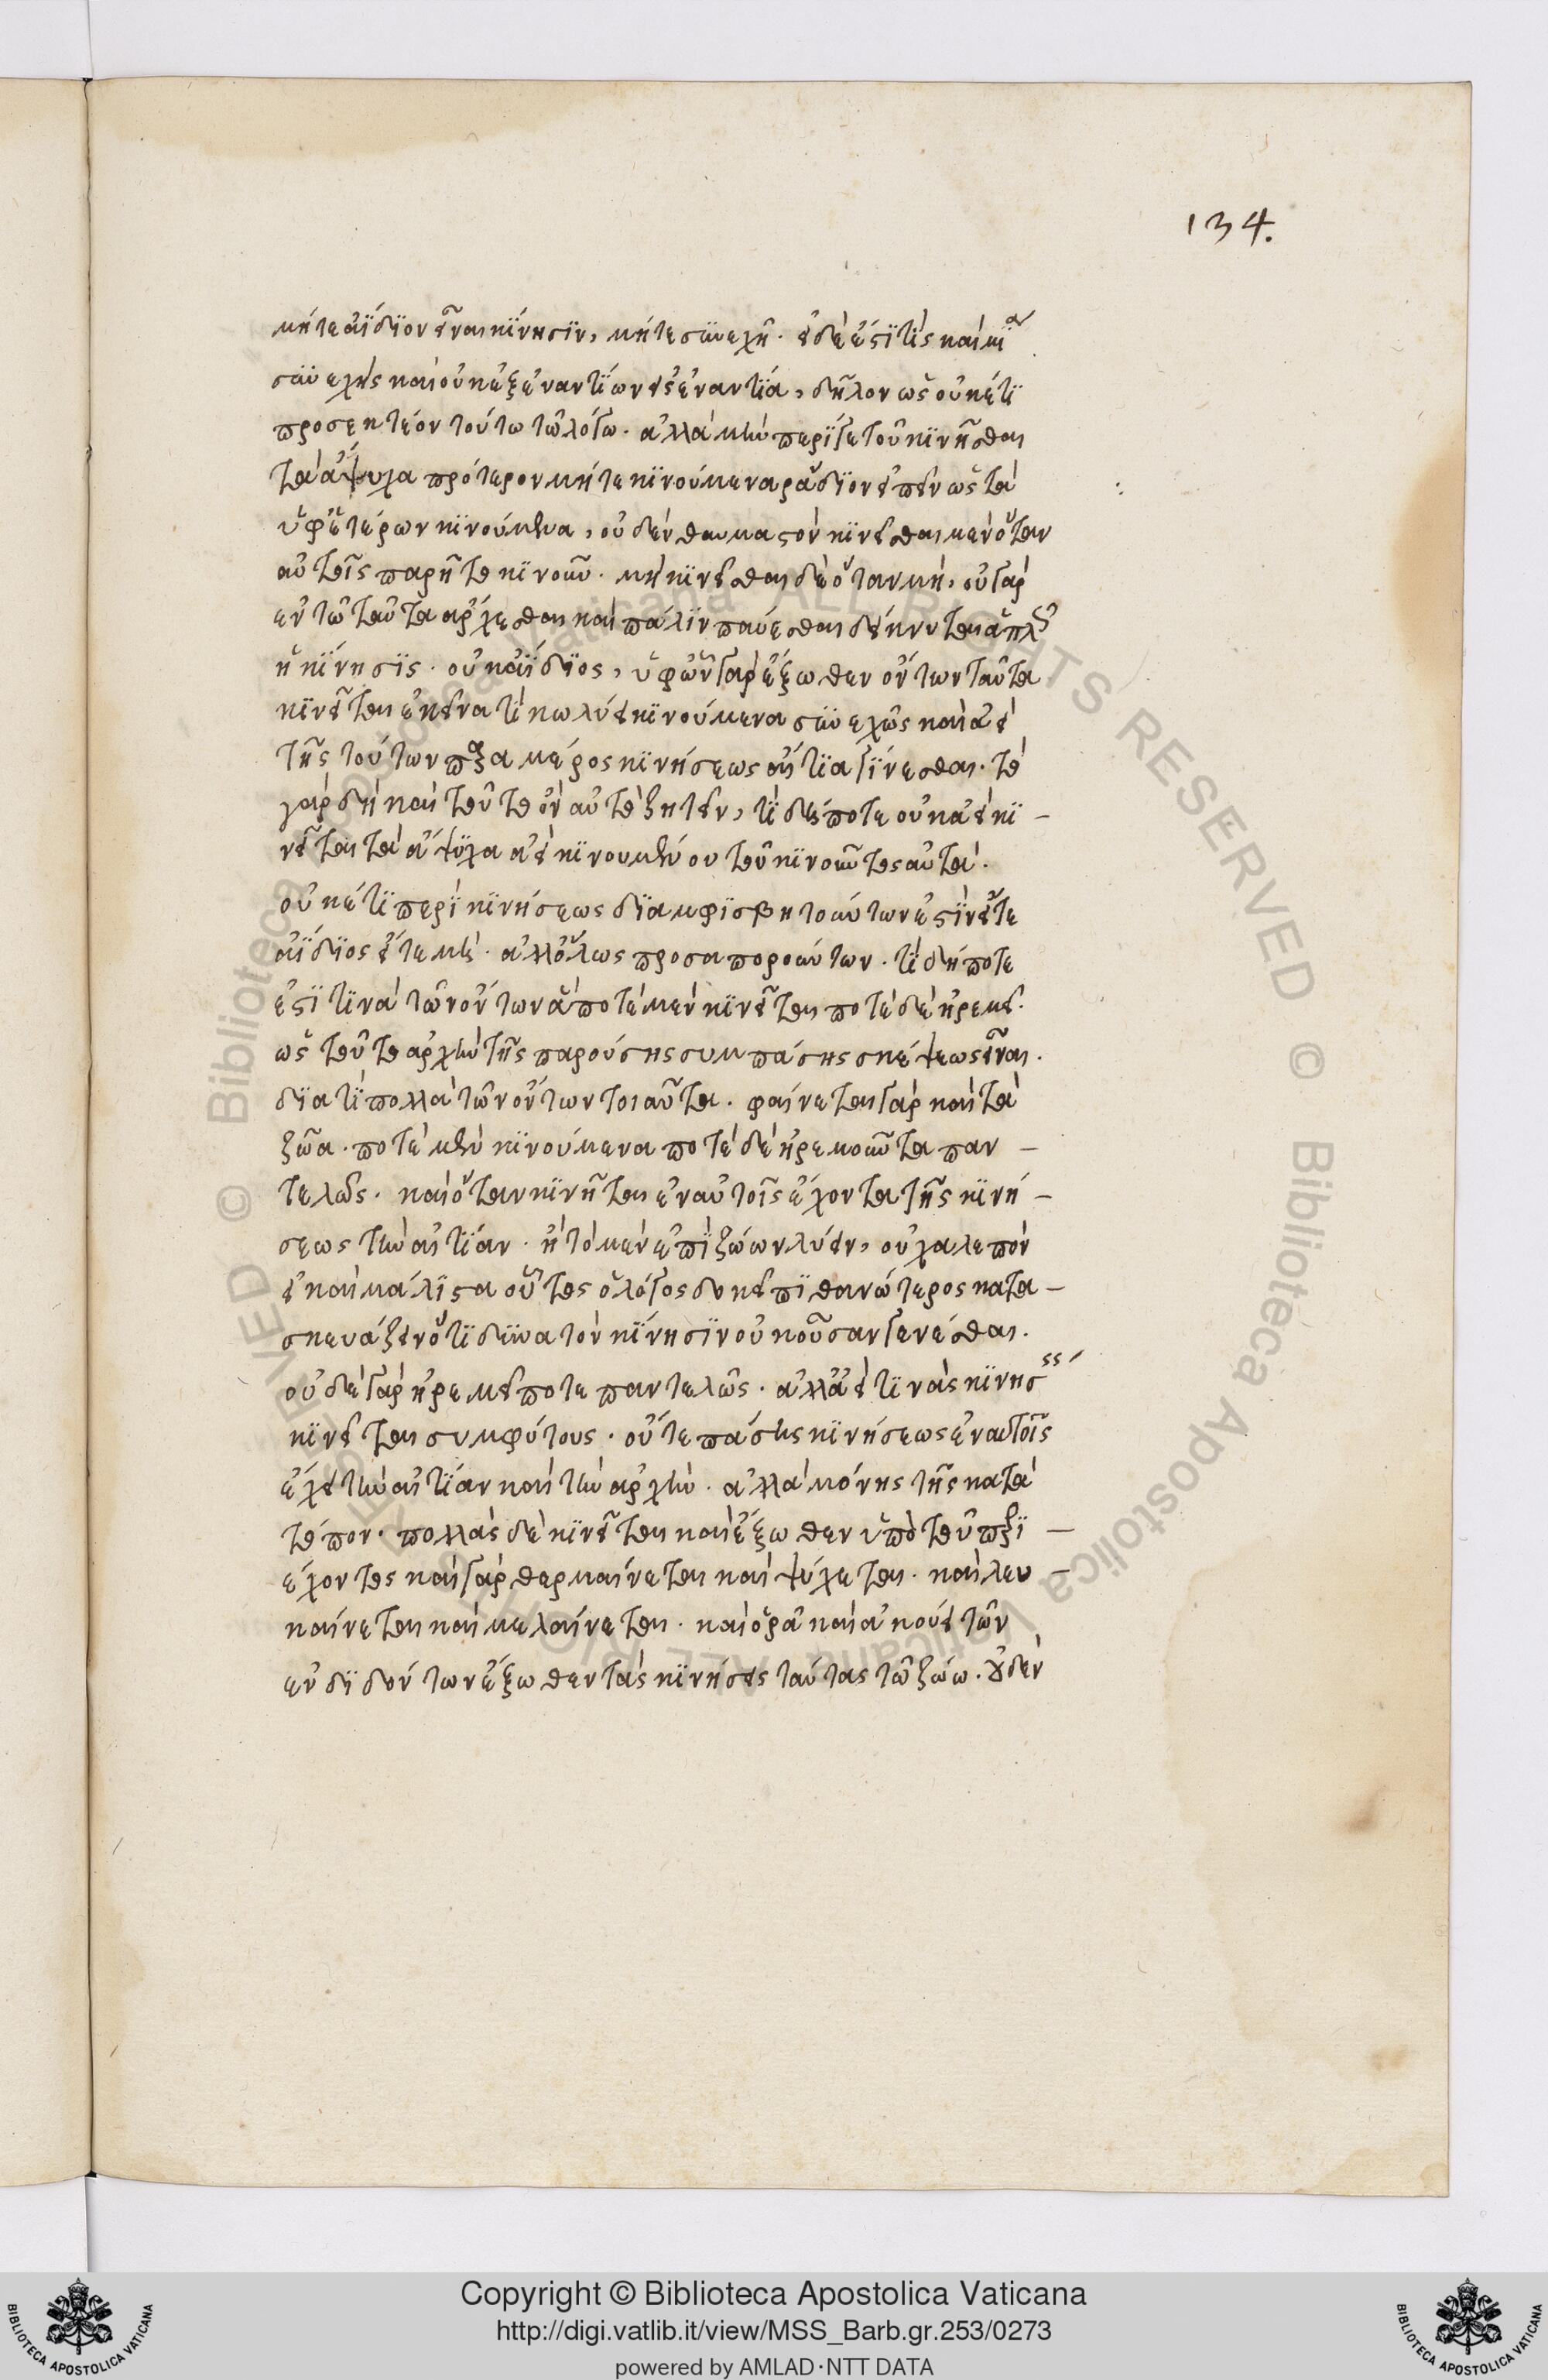 134.
μήτε ἀΐδιον εἶναι κίνησιν, μήτε συνεχῆ. εἰ δὲ ἔστι τὶς καὶ μία
συνεχὴς καὶ οὐκ ἐξ ἐναντίων εἰς ἐναντία, δῆλον ὡς οὐκέτι
προσεκτέον τούτω τῶ λόγω. ἀλλὰ μὴν περί γε τοῦ κινῆσθαι
τὰ ἄψυχα πρότερον μήτε κινούμενα ῥάδιον εἰπεῖν ὡς τὰ
ὑφ' ἑτέρων κινούμενα, οὐδὲν θαυμαστὸν κινεῖσθαι μὲν ὅταν
αὐτοῖς παρῆ τὸ κινοῦν. μὴ κινεῖσθαι δὲ ὅταν μὴ, οὐ γὰρ
ἐν τῶ ταῦτα ἄρχεσθαι καὶ πάλιν παύεσθαι δείκνυται ἁπλῶς
ἡ κίνησις. οὐκ ἀΐδιος, ὑφ' ὧν γὰρ ἔξωθεν ὄντων ταῦτα
κινεῖται ἐκεῖνα τί κωλύει κινούμενα συνεχῶς καὶ ἀεὶ
τῆς τούτων παρὰ μέρος κινήσεως αἴτια γίνεσθαι. τὸ
γὰρ δὴ καὶ τοῦτο ὂν αὐτὸ ζητεῖν, τί δήποτε οὐκ ἀεὶ κι-
νεῖται τὰ ἄψυχα ἀεὶ κινουμένου τοῦ κινοῦντος αὐτά.
οὐκέτι περὶ κινήσεως διαμφισβητούντων ἐστὶν εἴτε
ἀΐδιος εἴτε μὴ. ἀλλ' ὅλως προσαπορούντων. τί δήποτε
ἐστί τινα τῶν ὄντων ἃ ποτὲ μὲν κινεῖται ποτὲ δὲ ἠρεμεῖ.
ὡς τοῦτο ἀρχὴν τῆς παρούσης συμπάσης σκέψεως εἶναι.
διατί πολλὰ τῶν ὄντων τοιαῦτα. φαίνεται γὰρ καὶ τὰ
ζῶα. ποτὲ μὲν κινούμενα ποτὲ δὲ ἠρεμοῦντα παν-
τελῶς. καὶ ὅταν κινῆται ἐν αὐτοῖς ἔχοντα τῆς κινή-
σεως τὴν αἰτίαν. ἢ τὸ μὲν ἐπὶ ζώων λύειν, οὐ χαλεπὸν
εἰ καὶ μάλιστα οὗτος ὁ λόγος δοκεῖ πιθανώτερος κατα-
σκευάζειν ὅτι δυνατὸν κίνησιν οὐκ οὖσαν γενέσθαι.
οὐδὲ γὰρ ἠρεμεῖ ποτε παντελῶς. ἀλλ' ἀεί τινὰς κινήσεις
κινεῖται συμφύτους. οὔτε πάσης κινήσεως ἐν αὐτοῖς
ἔχει τὴν αἰτίαν καὶ τὴν ἀρχὴν. ἀλλὰ μόνης τῆς κατὰ
τόπον. πολλὰς δὲ κινεῖται καὶ ἔξωθεν ὑπὸ τοῦ περι-
έχοντος καὶ γὰρ θερμαίνεται καὶ ψύχεται. καὶ λευ-
καίνεται καὶ μελαίνεται. καὶ ὁρᾶ καὶ ἀκούει τῶν
ἐνδιδόντων ἔξωθεν τὰς κινήσεις ταύτας τῶ ζώω. οὐδὲν
Copyright © Biblioteca Apostolica Vaticana
http://digi.vatlib.it/view/MSS_Barb.gr.253/0273
powered by AMLAD·NTT DATA